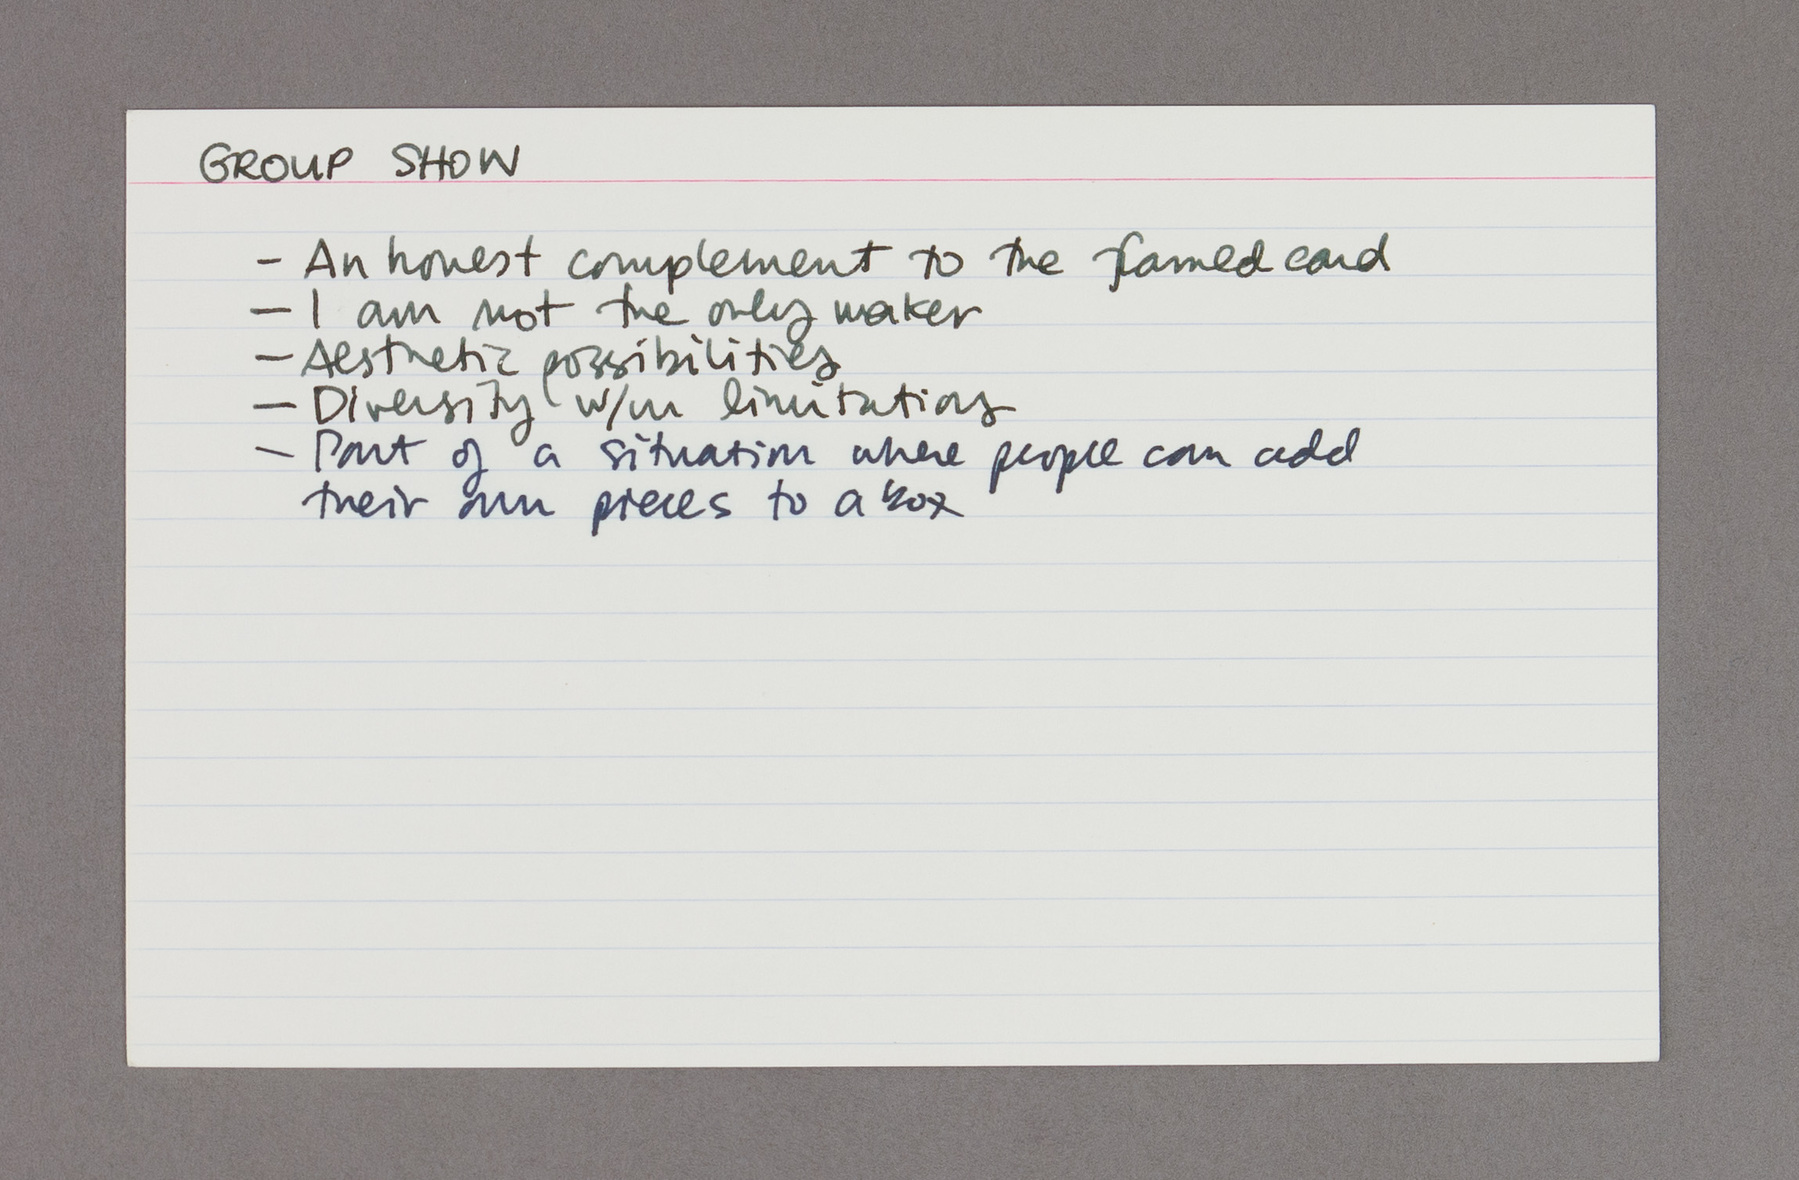 GROUP SHOW
- An honest complement to the framed card
- I am not the only maker
- Aesthetic possibilities
- Diversity w/in limitations
- Part of a situation where people can add
their own pieces to a box